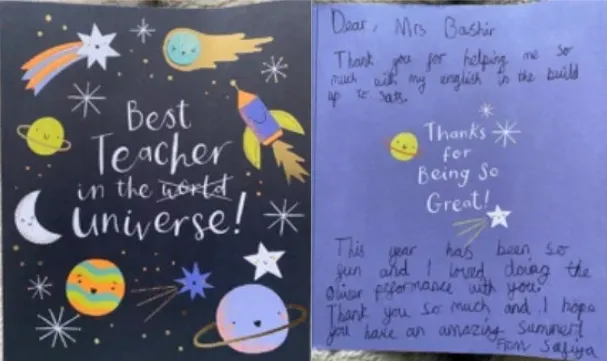 Best
Teacher
in the world
universe!
Dear, Mrs Bashir
Thank you for helping me so
much with my english in the build
up to sats.
Thanks
for
Being So
Great!
This year has been so
fun and I loved doing the
Oliver performance with you!
Thank you so much and I hope
you have an amazing summer!
From Safiya